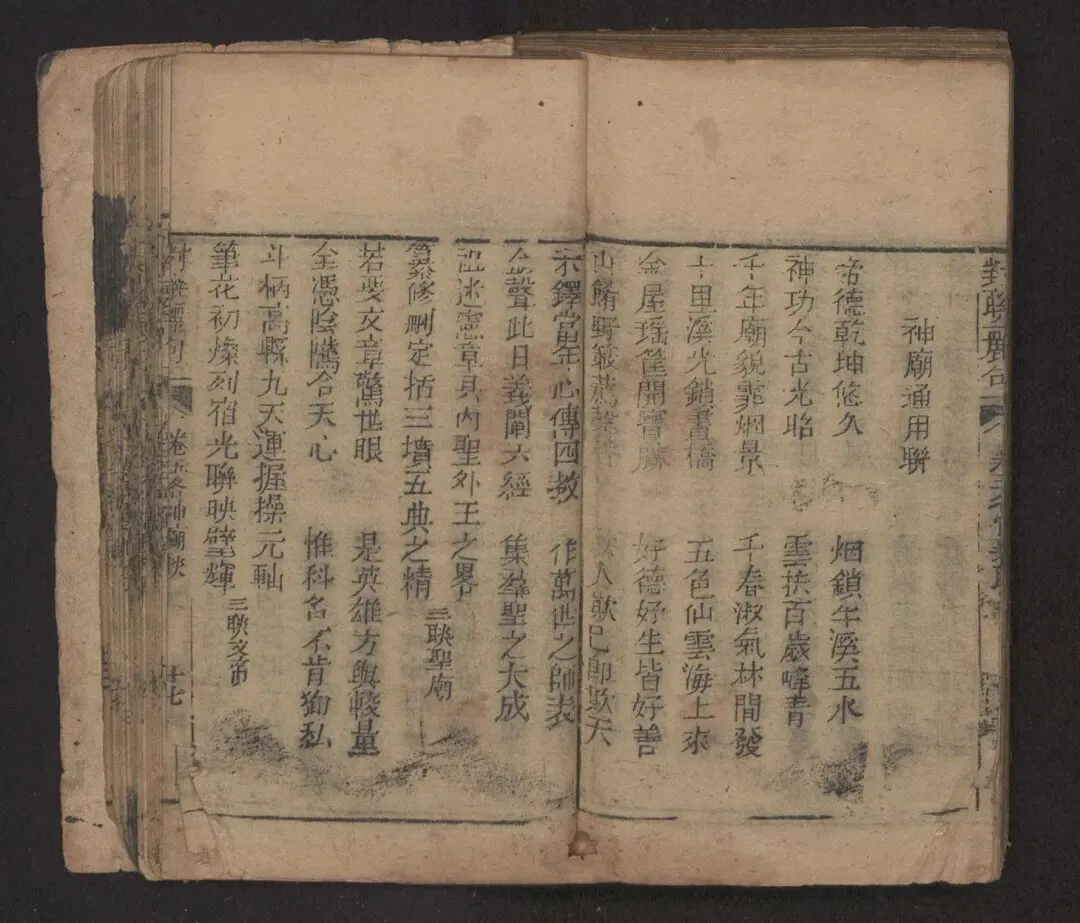 對聯麗句
神廟通用聯
帝德乾坤悠久 烟鎖年溪五水
神功今古光昭 雲扶百歲峰青
千年廟貌霏烟景 千春淑氣林間發
十里溪光鎖畫橋 五色仙雲海上來
金屋瑶筐開寶勝 好德好生皆好善
山餚野簌薦 欺人欺己卽欺天
木鐸當年心傳四教 作萬世之師表
金聲此日義闡六經 集羣聖之大成
祖述憲章具內聖外王之畧
纂修刪定括三墳五典之精 三聯聖廟
若斐文章驚世眼 是英雄方與較量
全憑陰隲合天心 惟科名不肯徇私
斗柄高縣九天運握操元軸
筆花初燦列宿光聯映壁輝 三聯文帝
對聯麗句 卷五各神廟聯 廿七